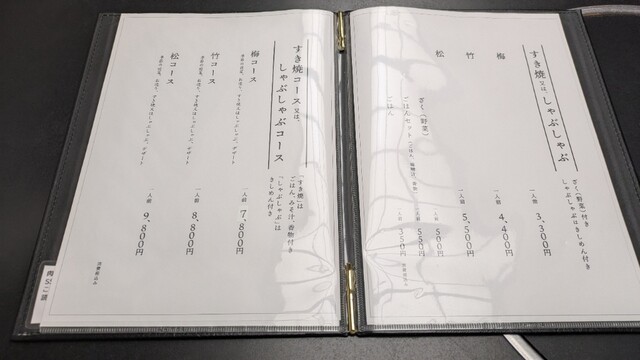 すき焼 又は、しゃぶしゃぶ
ざく(野菜)付き
しゃぶしゃぶはきしめん付き
梅 一人前 3,300円
竹 一人前 4,400円
松 一人前 5,500円
ざく(野菜) 一人前 500円
ごはんセット 550円
ごはん 一人前 350円
消費税込み
すき焼コース 又は、
しゃぶしゃぶコース
「すき焼」は
ごはん、みそ汁、香物付き
「しゃぶしゃぶ」は
きしめん付き
梅コース 一人前 7,800円
竹コース 一人前 8,800円
松コース 一人前 9,800円
消費税込み